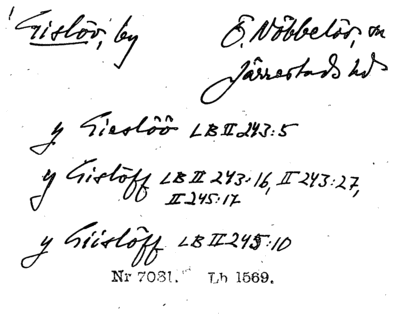 Gislöv, by Ö. Nöbbelöv sn
Järrestads hd
y Gieslöö LB II 243:5
y Gislöff LB II 243:16, II 243:27,
II 245:17
y Giislöff LB II 245:10
Nr 7031. Lh 1569.